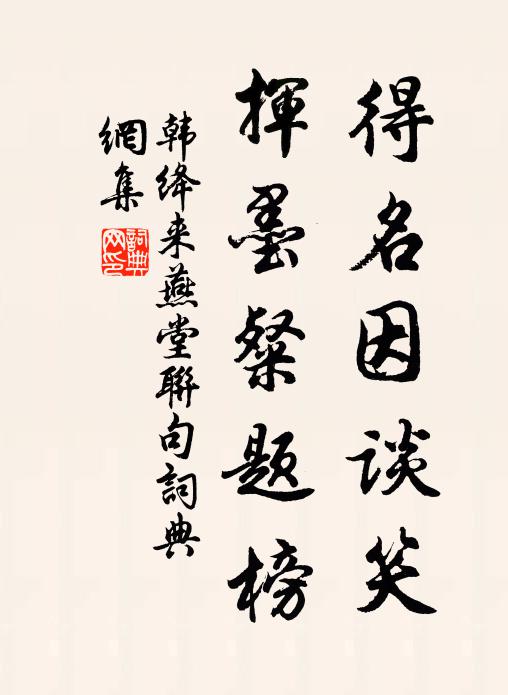 得名因谈笑
揮墨粲题榜
韩绛来燕堂聯句詞典
網集
詞典
网印